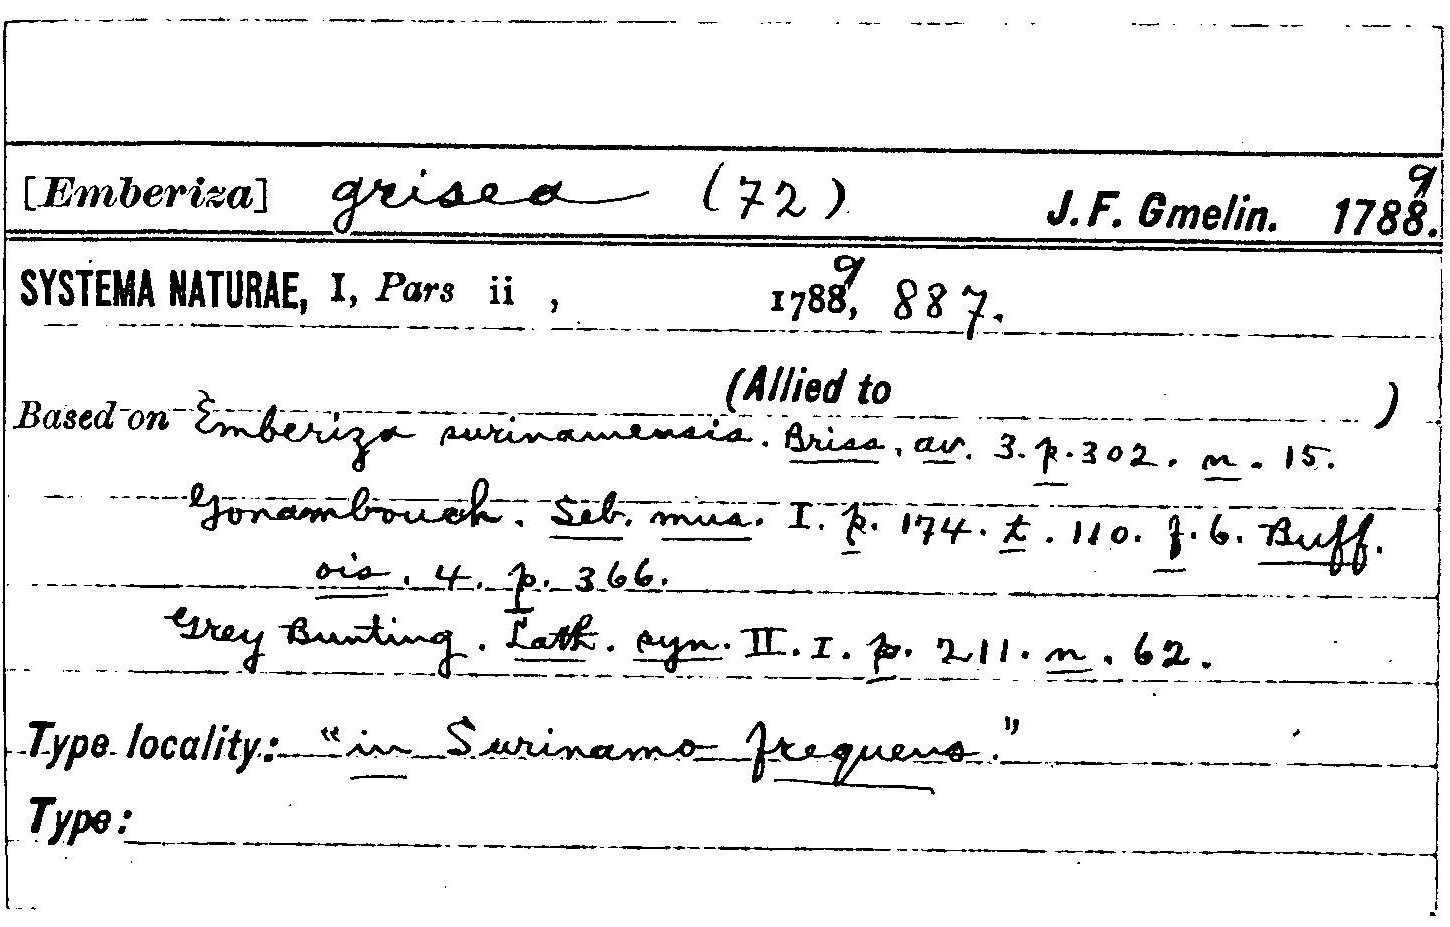 [Emberiza] grisea (72) J. F. Gmelin. 1788.9
SYSTEMA NATURAE, I, Pars ii , 1788,9 887.
(Allied to )
Based on Emberiza surinamensis. Briss. av. 3. p. 302. n. 15.
Gonambouch. Seb. mus. I. p. 174. t. 110. f. 6. Buff.
ois. 4. p. 366.
Grey Bunting. Lath. syn. II. I. p. 211. n. 62.
Type locality: "in Surinamo frequens."
Type: